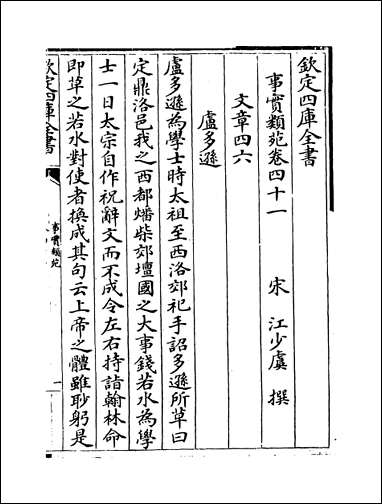 欽定四庫全書
事實類苑卷四十一
宋 江少虞 撰
文章四六
盧多遜
盧多遜為學士時太祖至西洛郊祀手詔多遜所草曰
定鼎洛邑我之西都燔柴郊壇國之大事錢若水為學
士一日太宗自作祝辭文而不成令左右持詣翰林命
即草之若水對使者換成其句云上帝之體雖眇躬是
欽定四庫全書
事實類苑
一